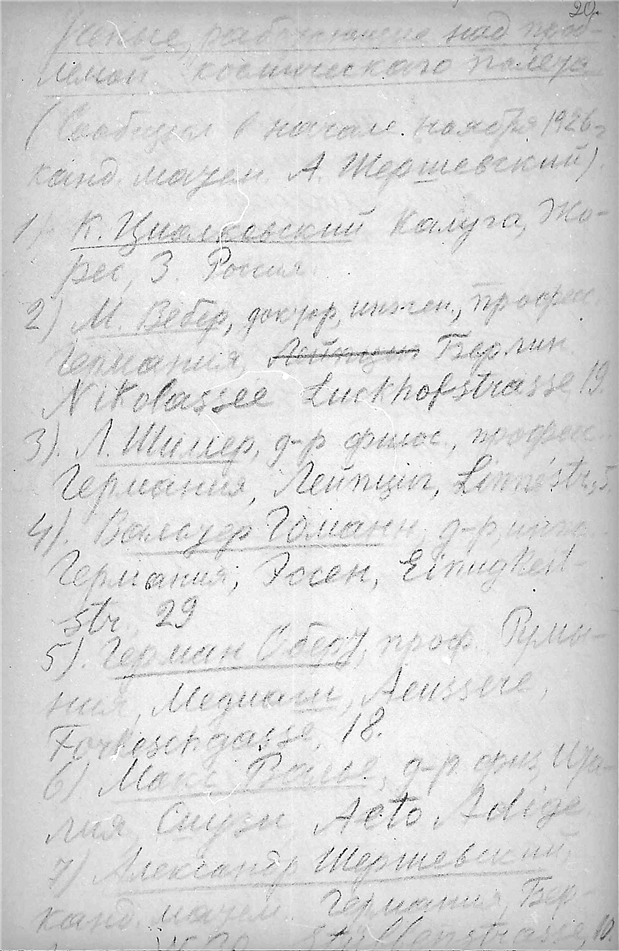 20.
Ученые, работающие над проб-
лемой космического полета
(Сообщил в начале ноября 1926 г.
канд. матем. А. Шершевский).
1). К. Циолковский Калуга, Жо-
рес, 3. Россия
2) М. Вебер, доктор, инжен., профес.
Германия, Лейпциг Берлин
Nikolassee Luckhofstrasse, 19.
3). Л. Шиллер, д-р филос., профес.
Германия, Лейпциг, Linnestr, 5.
4). Вальтер Гоманн, д-р, инж.
Германия, Эссен, Einigkeit
str. 29
5). Герман Оберт, проф. Румы-
ния, Медиаш, Aeussere,
Forkeschgasse, 18.
6) Макс Валье, д-р физ, Ита-
лия, Сиузи, Aeto Adige
7) Александр Шершевский,
канд. матем. Германия, Бер-
10.